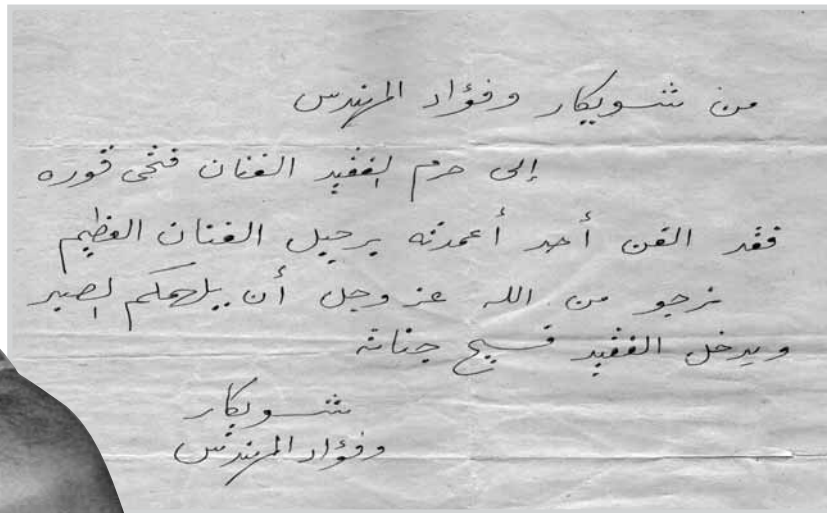 من شويكار وفؤاد المهندس
إلى حرم الفقيد الفنان فتحى قوره
فقد الفن أحد أعمدته برحيل الفنان العظيم
نرجو من الله عز وجل أن يلهمكم الصبر
ويدخل الفقيد فسيح جناته
شويكار
وفؤاد المهندس